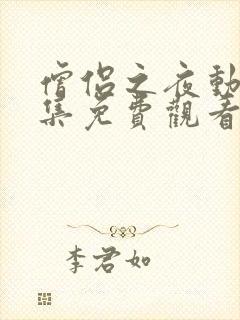 僧侶之夜動
集免費觀看
李君如